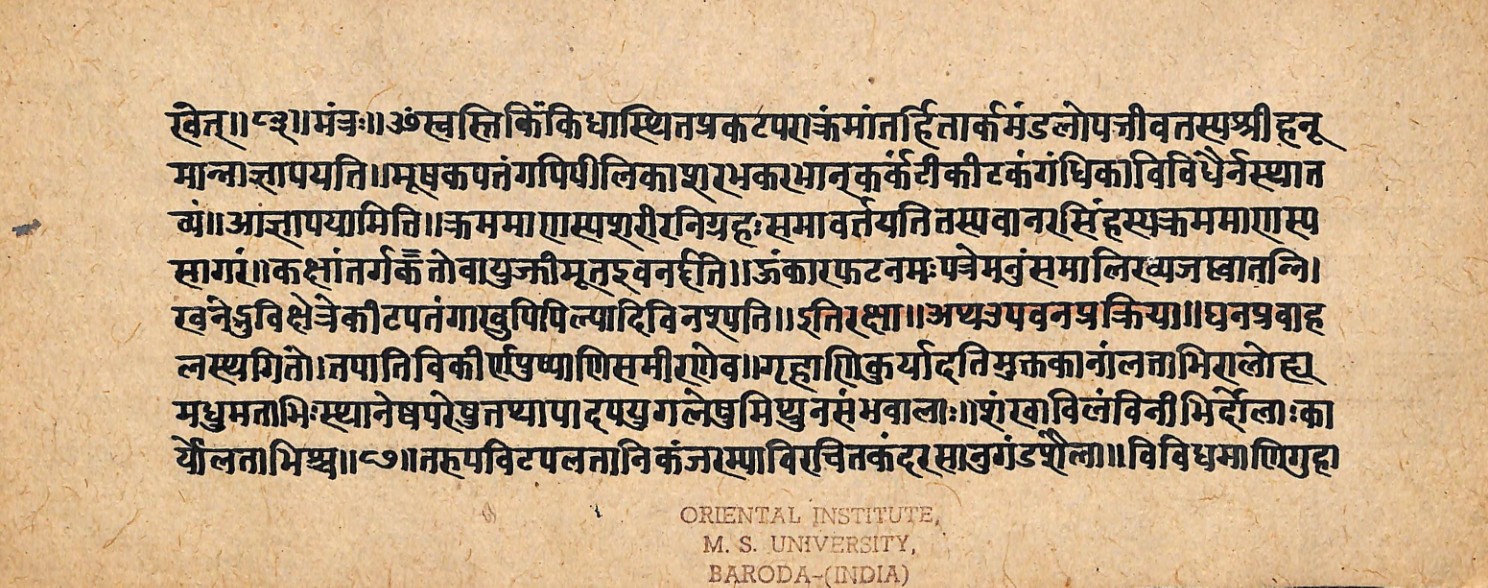 खेत्॥८३॥मंत्रः॥ॐस्वस्तिकिंकिधास्थितप्रकटपराक्रंमांतर्हितार्कमंडलोपजीवतस्यश्रीहनू
मान्नाज्ञापयति॥मूषकपतंगपिपीलिकाशरभकरभान्कर्कटीकीटकंगंधिकाविविधैर्नस्थात
व्यं॥आज्ञापयामित्ति॥क्रममाणस्यशरीरनिग्रहःसमावर्त्तयतितस्यवानरसिंहस्यक्रममाणस्य
सागरं॥कक्षांतर्गतोवायुर्जीमूतइवनर्द्दति॥ऊंकारफटनमःपत्रेमनुंसमालिख्यजप्त्वातन्नि।
खनेद्भुविक्षेत्रेकीटपतंगाखुपिपिल्यादिविनश्यति॥इतिरक्षा॥अथउपवनप्रक्रिया॥घनप्रवाह
लस्थगितो।तपातिविकीर्णपुष्पाणिसमीरणेव॥गृहाणिकुर्यादतिमुक्तकानांलताभिरालोह्य
मधुमताभिःस्थानेषपरेषुतथापादपयुगलेषुमिथुनसंभवालाः॥शंखाविलंविनीभिर्द्दोलाःका
र्योलताभिश्च॥८७॥तरुपविटपलतानिकंजरम्याविरचितकंदरसानुगंडशैला॥विविधमाणिगुहा
ORIENTAL INSTITUTE,
M. S. UNIVERSITY,
BARODA-(INDIA)